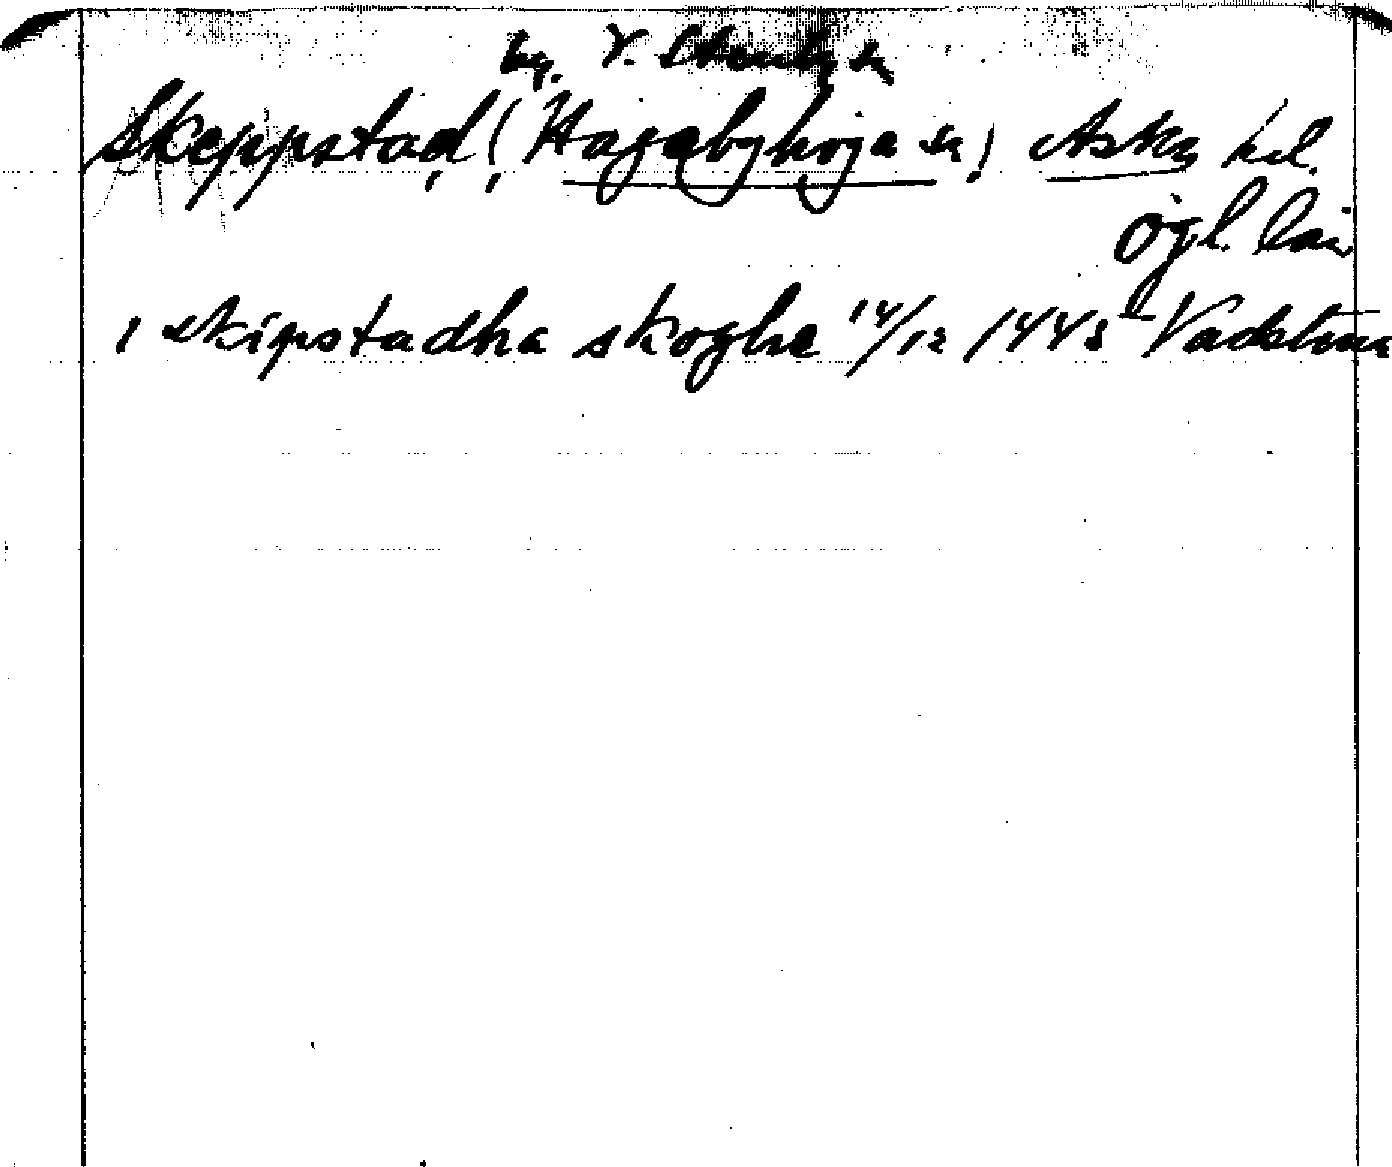 by. V. Stenby sn
Skeppstad, (, Hagebyhöga sn) Aska hd.
Ögl. län
i skipstadha skoghe 14/12 1445 Vadstena